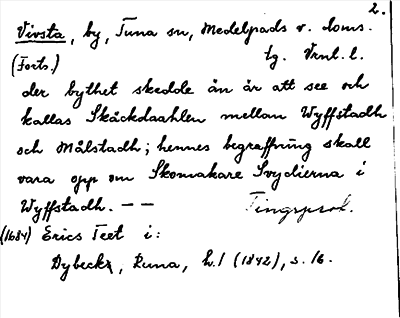 2.
Vivsta, by, Tuna sn, Medelpads v. doms.
(Forts.) tg. Vrnl. l.
der bythet skedde än är att see och
kallas Skäckdaahlen mellan Wyffstadh
och Målstadh; hennes begraffning skall
vara opp om Skomakare Svydierna i
Wyffstadh. — — Tingsprot.
(1684) Erics Teet i:
Dybeck, Runa, h. 1 (1842), s. 16.